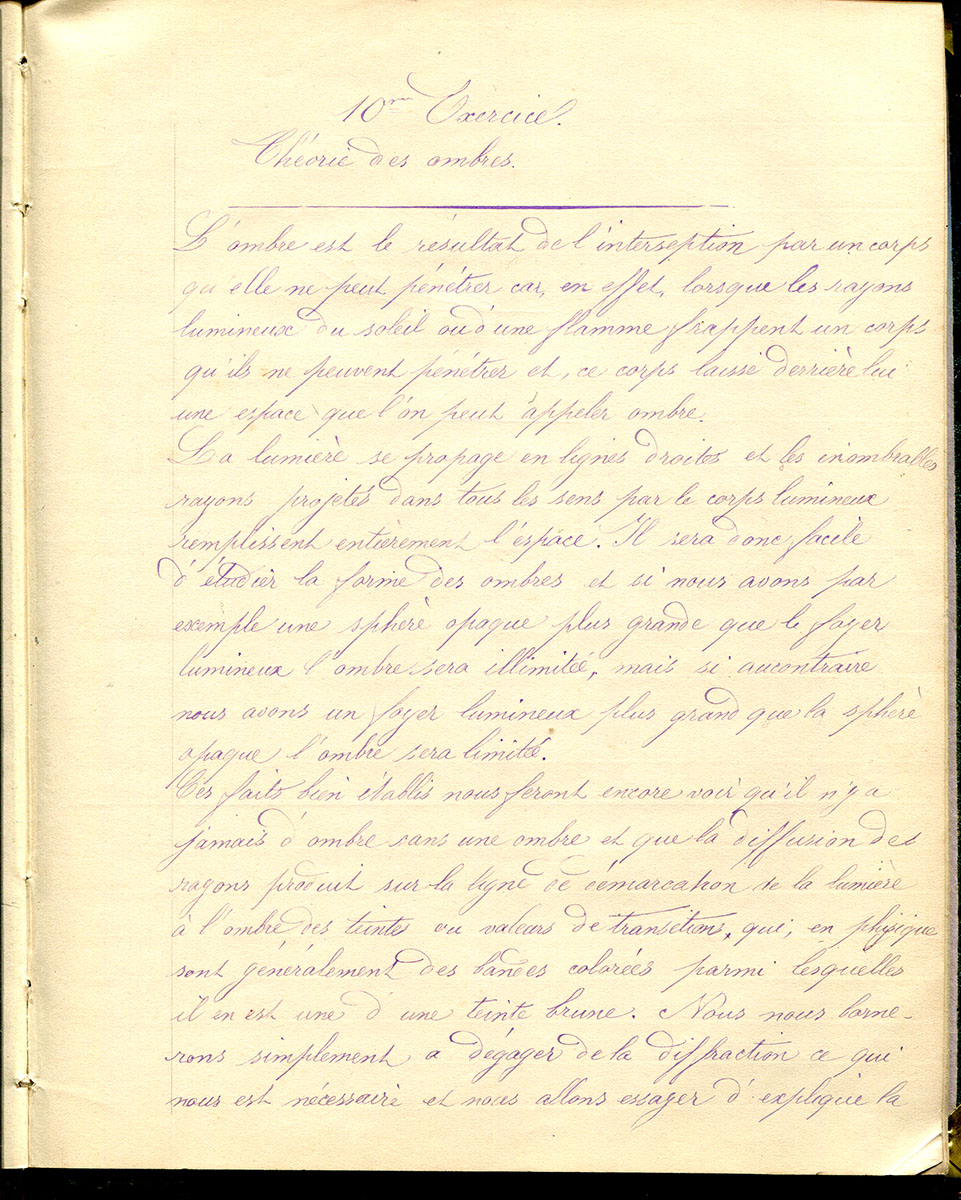 10me Exercice.
Théorie des ombres.
L'ombre est le résultat de l'interseption par un corps
qu'elle ne peut pénétrer car, en effet, lorsque les rayons
lumineux du soleil ou d'une flamme frappent un corps
qu'ils ne peuvent pénétrer et, ce corps laisse derrière lui
une espace que l'on peut appeler ombre.
La lumière se propage en lignes droites et les inombrables
rayons projetés dans tous les sens par le corps lumineux
remplissent entièrement l'espace. Il sera donc facile
d'étudier la forme des ombres et si nous avons par
exemple une sphère opaque plus grande que le foyer
lumineux l'ombre sera illimitée, mais si aucontraire
nous avons un foyer lumineux plus grand que la sphère
opaque l'ombre sera limitée.
Ces faits bien établis nous feront encore voir qu'il n'y a
jamais d'ombre sans une ombre et que la diffusion des
rayons produit sur la ligne de démarcation de la lumière
à l'ombre des teintes ou valeurs de transetions, qui, en physique
sont généralement des bandes colorées parmi lesquelles
il en est une d'une teinte brune. Nous nous borne-
rons simplement a dégager de la diffraction ce qui
nous est nécessaire et nous allons essayer d'explique la